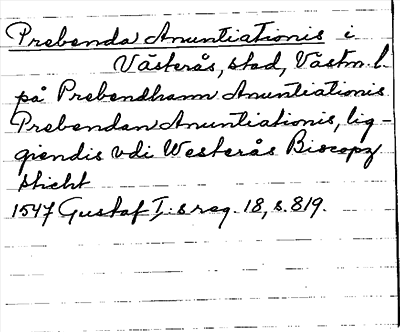 Prebenda Anuntiationis i
Västerås, stad, Västm. l.
på Prebendhann Anuntiationis
Prebendan Anuntiationis, lig-
giendis vdi Westerås Biscopz
sticht
1547 Gustaf I:s reg. 18, s. 819.